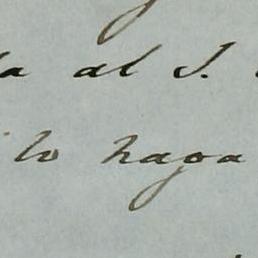 a al S.
lo haga